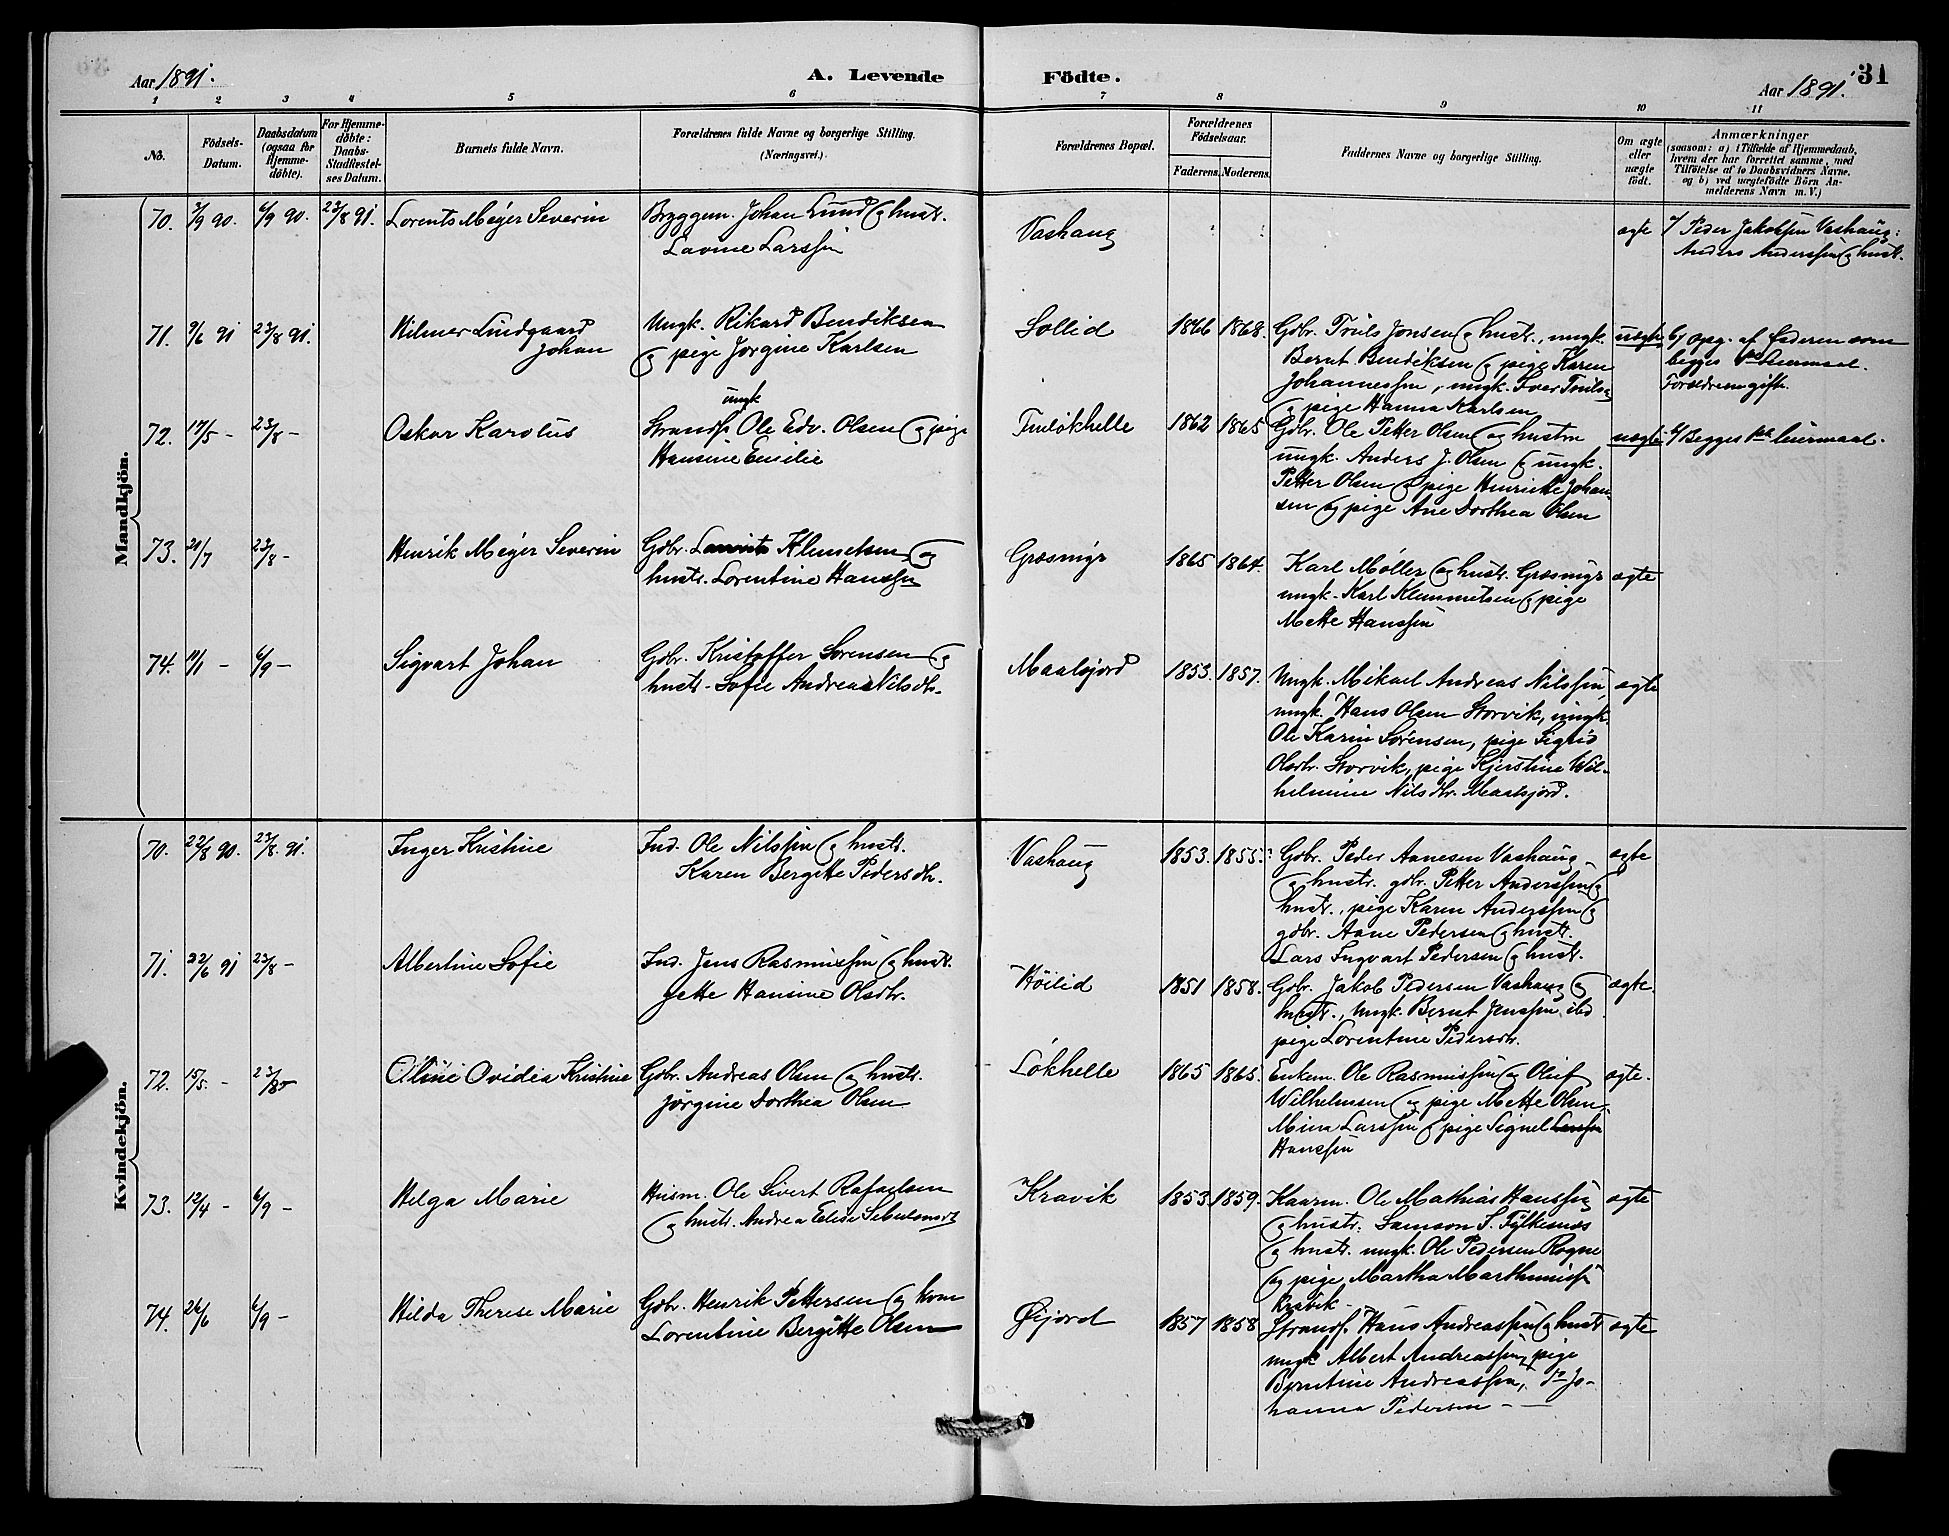 Aar 1891.
A. Levende
Födte.
31
Aar 1891.
1 2 3 4 5 6 7 8 9 10 11
No.
Födsels-Datum.
Daabsdatum (ogsaa for Hjemme-döbte).
For Hjemme-döbte: Daabs-Stadfæstel-ses Datum.
Barnets fulde Navn.
Forældrenes fulde Navne og borgerlige Stilling. (Næringsvei.)
Forældrenes Bopæl.
Forældrenes Födselsaar.
Faderens. Moderens.
Faddernes Navne og borgerlige Stilling.
Om ægte eller uægte født.
Anmærkninger
(saasom: a) i Tilfælde af Hjemmedaab, hvem der har forrettet samme, med Tilföielse af to Daabsvidners Navne, og b) ved uægtefödte Börn An-melderens Navn m. V.)
Mandkjön.
70. 3/9 90. 6/9 90. 23/8 91. Lorents Meyer Severin
Bryggem. Johan Lund og hustr.
Lavine Larssen
Vashaug
ægte
a/ Peder Jakobsen Vashaug:
Anders Anderssen og hustr.
71. 9/6 91 23/8 91. Hilmer Lindgaard
Johan
Ungk. Rikard Bendiksen
og pige Jørgine Karlsen
Sollid 1866 1868.
Gdbr. Truls Jonsen og hustr., ungk.
Bernt Bendiksen og pige Karen
Johannessen, ungk. Iver Truls
og pige Hanna Karlsen
uægte
b/ opg. af Faderen som
begges 1ste leiermaal.
Forældrene gift.
72. 17/5 - 23/8 - Oskar Karolus
ungk
Strands. Ole Edv. Olsen og pige
Hansine Emilie
Finløkhelle 1862 1865
Gdbr. Ole Petter Olsen og hustru
ungk. Anders J. Olsen og ungk.
Petter Olsen og pige Henrikke Johan-
sen og pige Ane Dorthea Olsen
uægte
b/ Begges 1ste leiermaal.
73. 21/7 23/8 - Henrik Meyer Severin
Gdbr. Laurits Klemetsen og
hustr. Lorentine Hanssen
Græsmyr 1865 1864.
Karl Møller og hustr. Græsmyr
ungk. Karl Klemmetsen og pige
Mette Hanssen
ægte
74. 11/1 - 6/9 - Sigvart Johan
Gdbr. Kristoffer Sørensen og
hustr. Sofie Andrea Nilsdtr.
Maalsjord 1853. 1857.
Ungk. Mikael Andreas Nilssen
ungk. Hans Olsen Storvik, ungk.
Ole Karin Sørensen, pige Sigrid
Olsdtr. Storvik, pige Kjerstine Wil-
helmine Nilsdtr. Maalsjord.
ægte
Kvindekjön.
70. 22/8 90. 23/8. 91. Inger Kristine
Ind. Ole Nilssen og hustr.
Karen Bergitte Pedersdtr.
Vashaug 1853. 1855.
Gdbr. Peder Aanesen Vashaug
og hustr. gdbr. Petter Anderssen og
hustr., pige Karen Anderssen og
gdbr. Aane Pedersen og hustr.
Lars Ingvart Pedersen og hustr.
ægte
71. 22/6 91 23/8 - Albertine Sofie
Ind. Jens Rasmussen og hustr.
Jette Hansine Olsdtr.
Høilid 1851 1858.
Gdbr. Jakob Pedersen Vashaug og
hustr., ungk. Bernt Jenssen ibd
pige Lorentine Pedersdtr.
ægte.
72. 15/5. - 23/8 - Oline Ovidia Kristine
Gdbr. Andreas Olsen og hustr.
Jørgine Dorthea Olsen
Løkhelle 1865 1865.
Enkem. Ole Rasmussen og Oluf
Wilhelmsen og pige Mette Olsen,
Mina Larssen og pige Signel Larssen
Hanssen
ægte.
73. 12/4 - 6/9 - Helga Marie
Husm. Ole Sivert Rafaelsen
og hustr. Andrea Edise Sebulonsdt
Kravik 1853 1859.
Kaarm. Ole Mathias Hanssen
og hustr. Samson S. Fylkesnes
og hustr. ungk. Ole Pedersen Rogne
og pige Martha Marthinuss
Kravik
ægte
74. 26/6 6/9 - Hilda Therese Marie
Gdbr. Henrik Pettersen og kone
Lorentine Bergitte Olsen
Øijord 1857 1858
Strands. Hans Andreassen og hustr
ungk Albert Andreassen, pige
Berntine Andreassen, do Jo-
hanna Pedersen
ægte